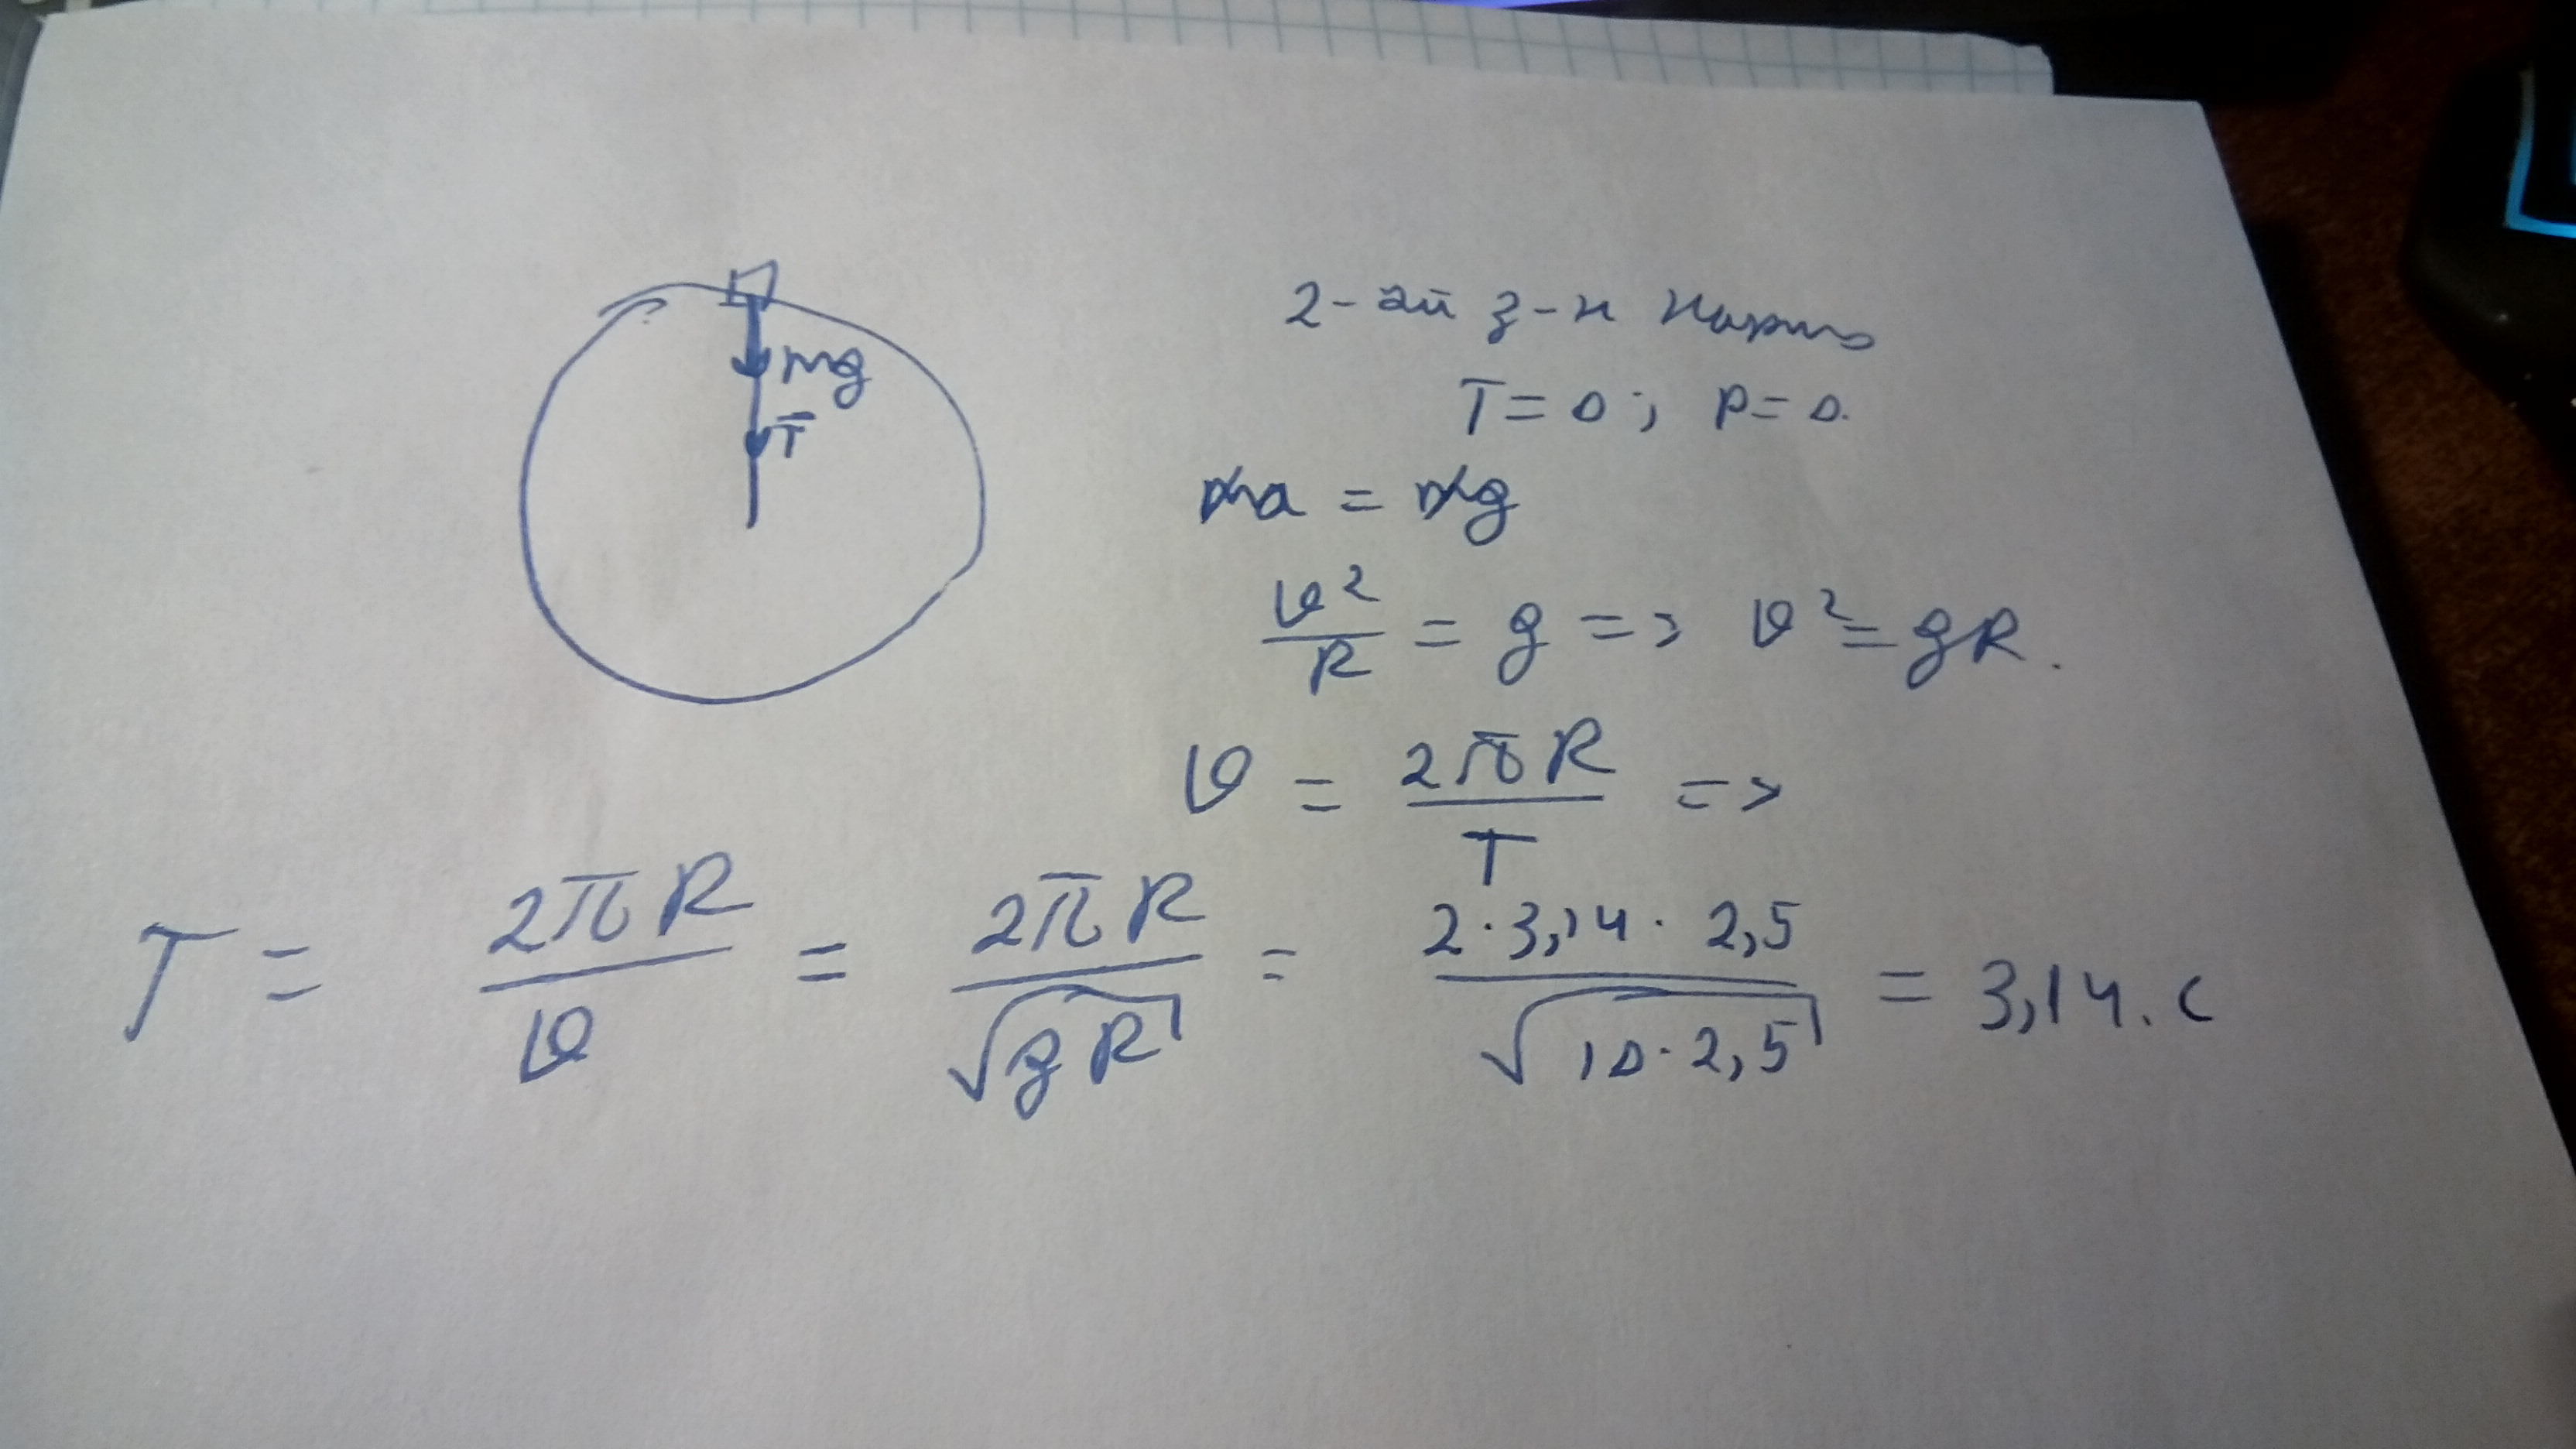 mg
T̄
2-ой з-н Ньютона
T = 0 ; P = 0.
ma = mg
v²/R = g => v² = gR.
v = 2πR/T =>
T = 2πR/v = 2πR/√(gR) = 2·3,14·2,5/√(10·2,5) = 3,14. с